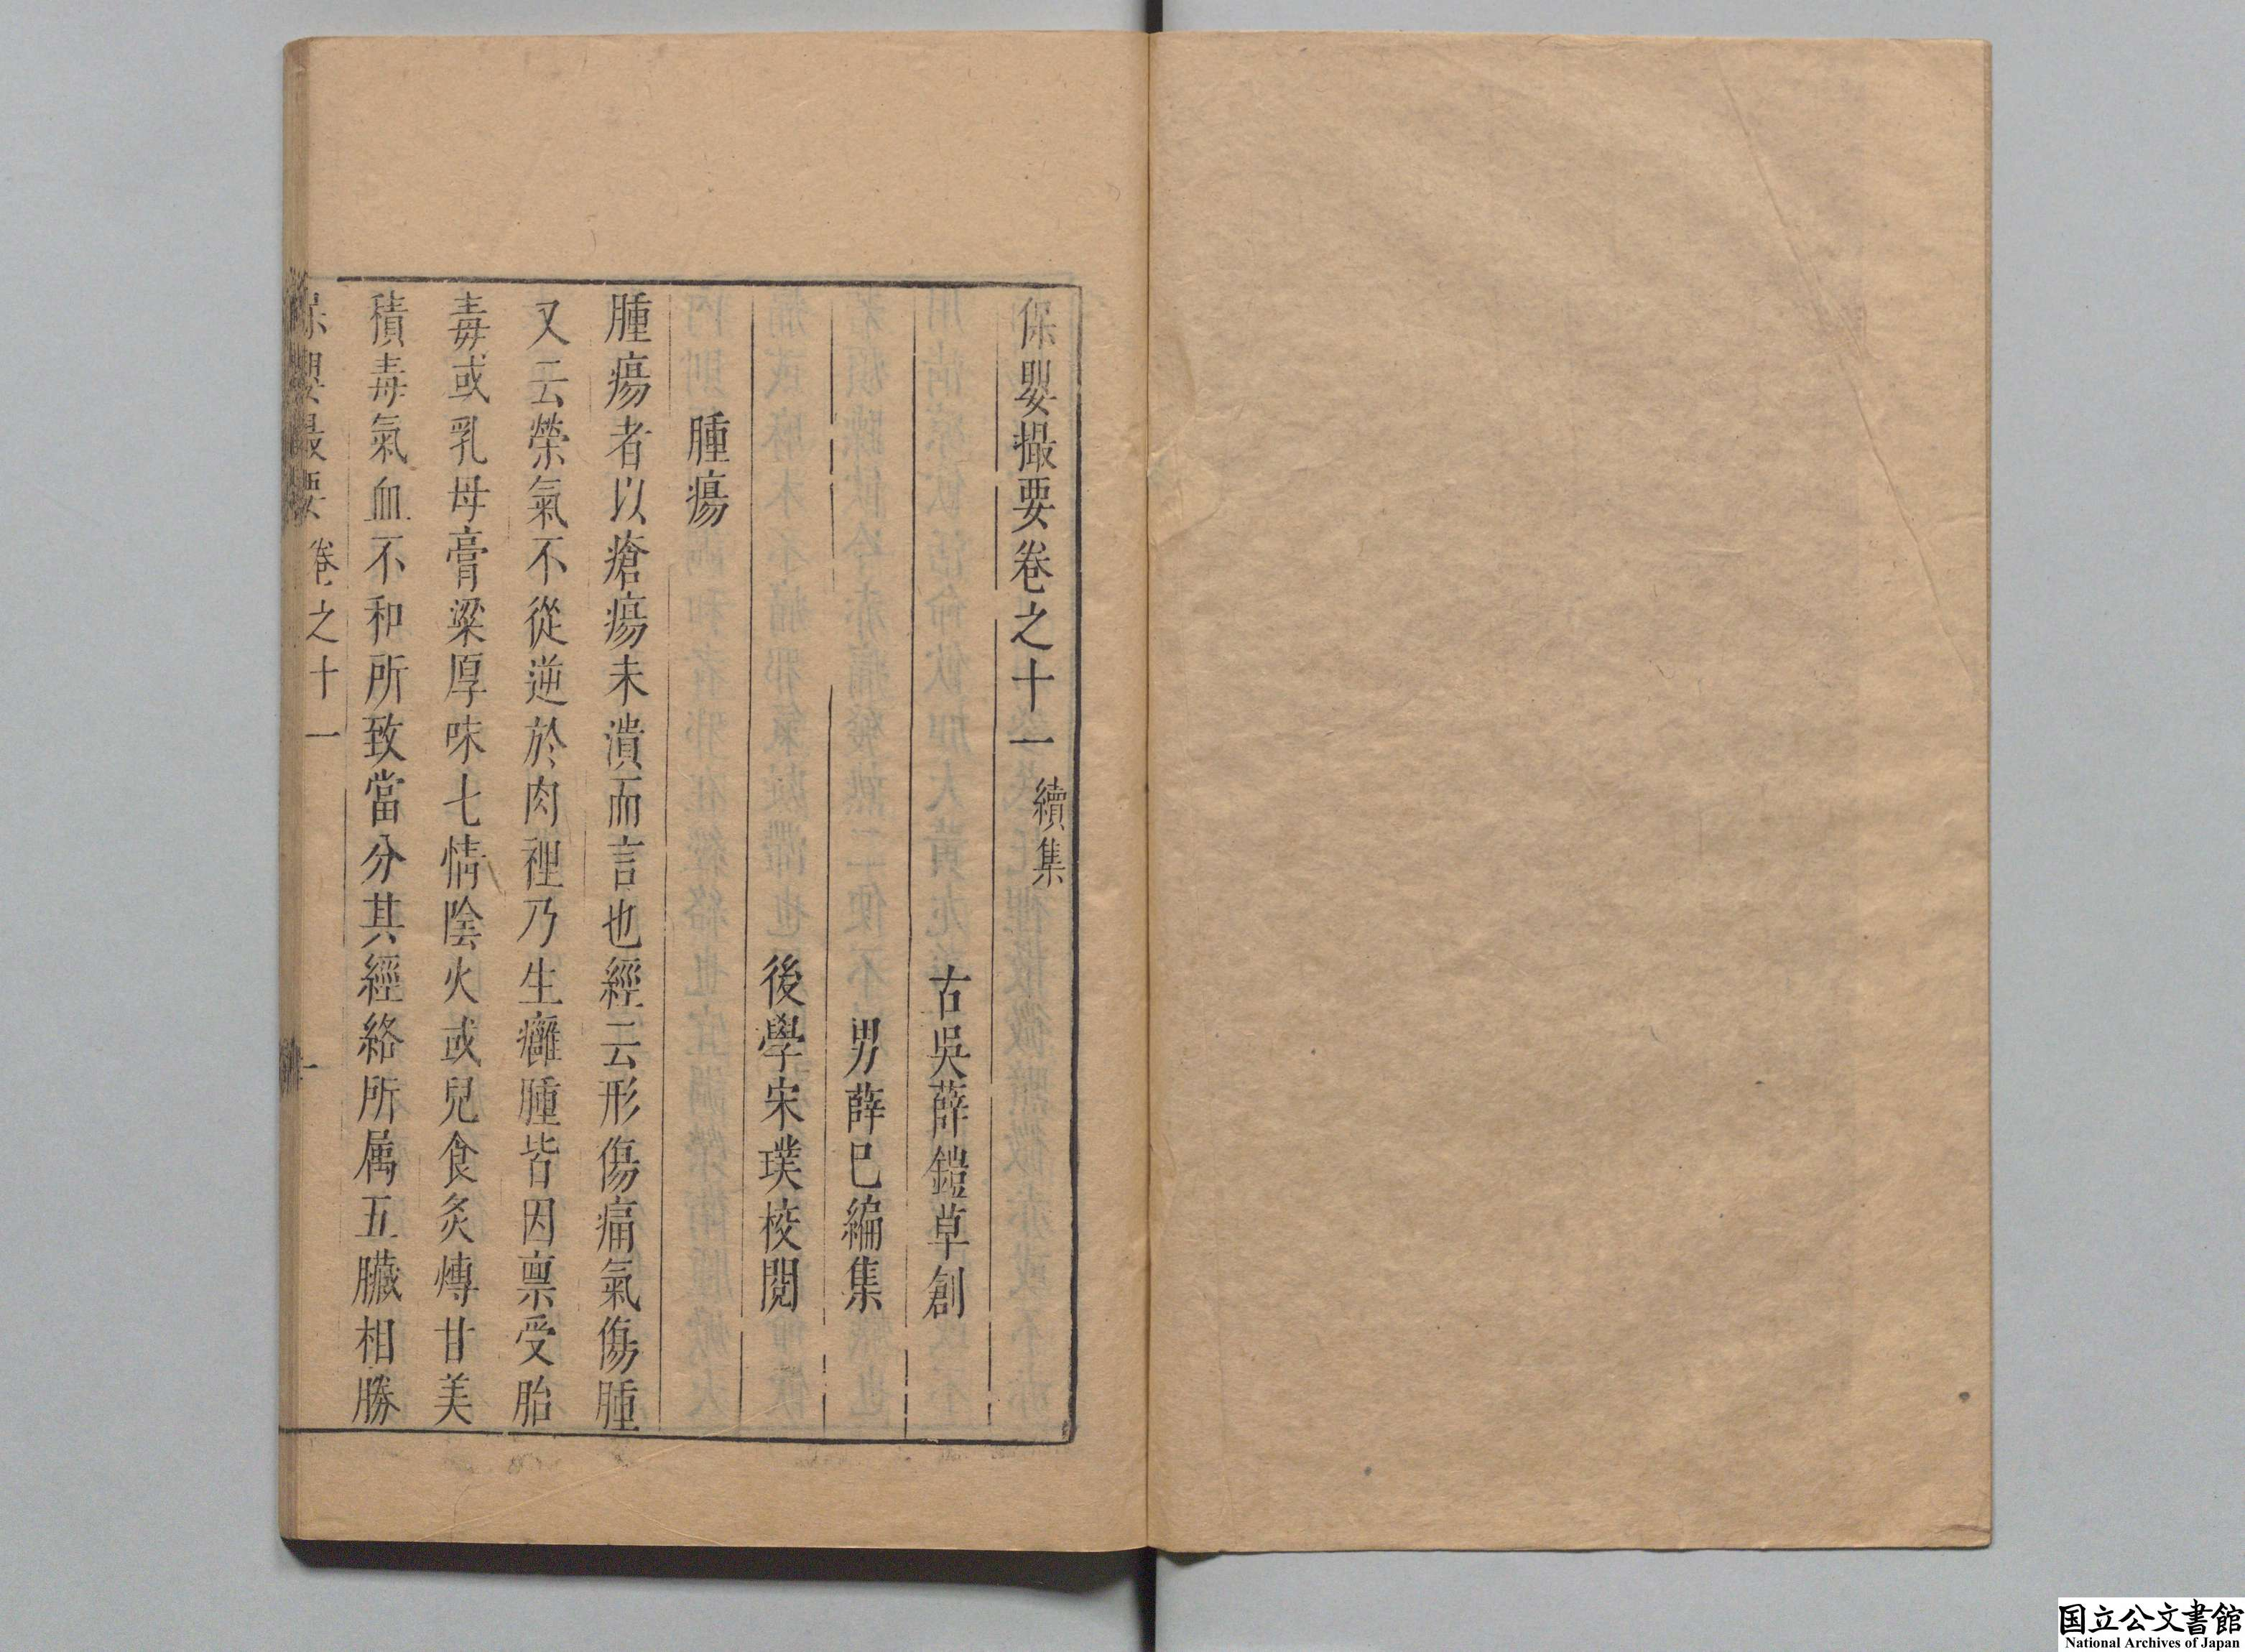 保嬰撮要卷之十一 續集
古吳薛鎧草創
男薛已編集
後學宋璞校閱
腫瘍
腫瘍者以瘡瘍未潰而言也經云形傷痛氣傷腫
又云榮氣不從逆於肉裡乃生癰腫皆因禀受胎
毒或乳母膏粱厚味七情陰火或兒食炙煿甘美
積毒氣血不和所致當分其經絡所属五臟相勝
保嬰撮要 卷之十一 一
国立公文書館
National Archives of Japan